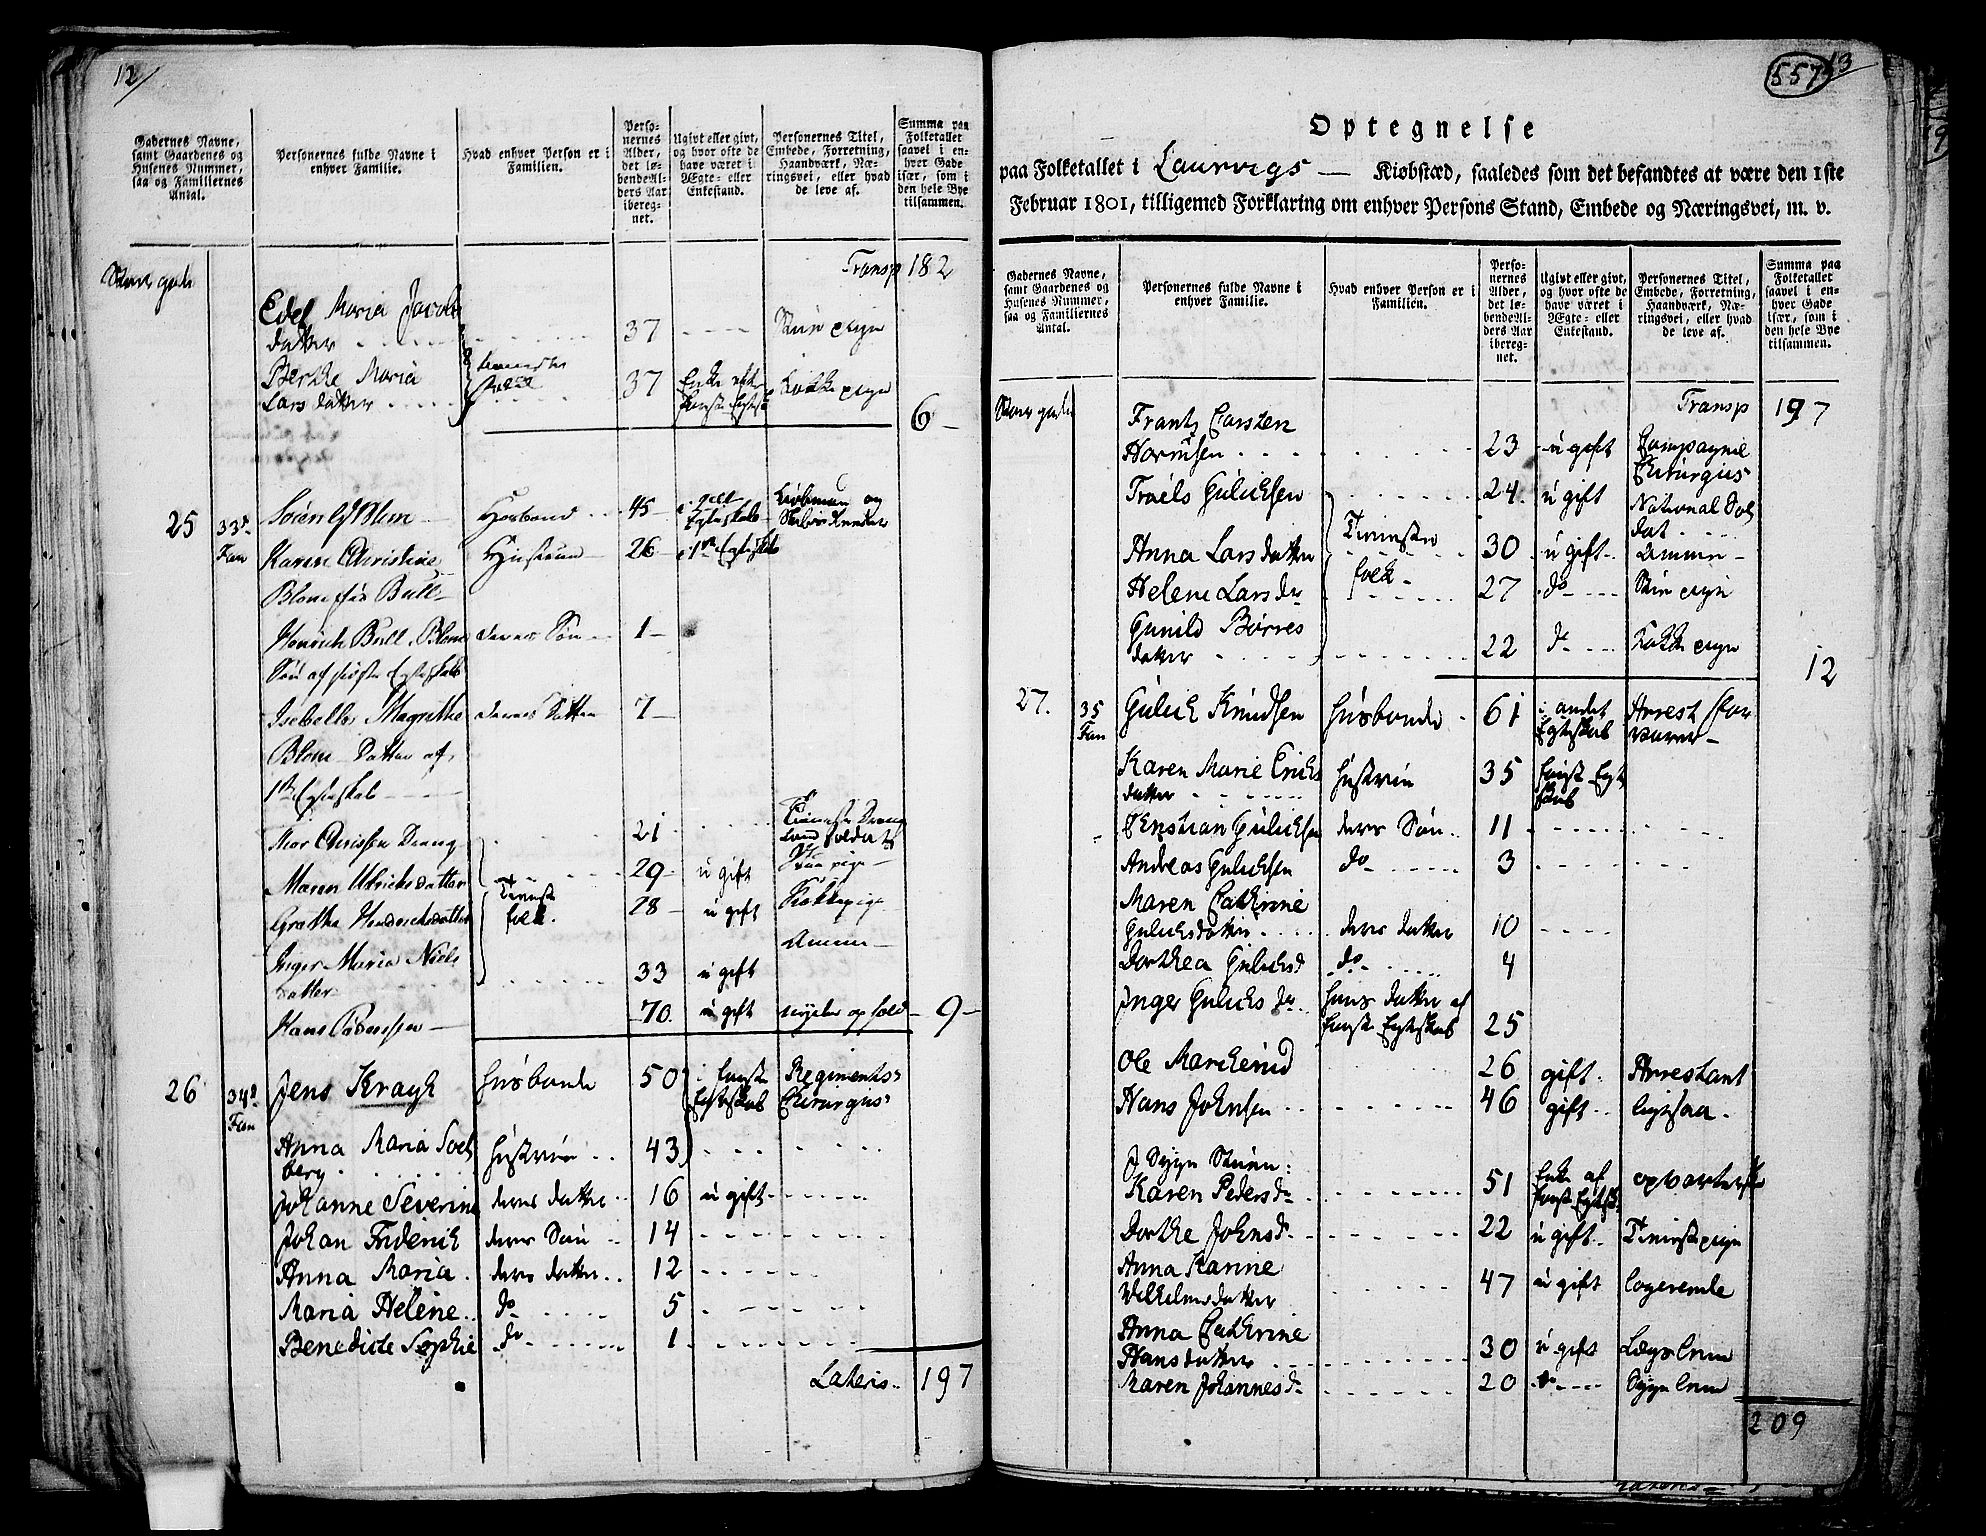 12/
Gadernes Navne, samt Gaardenes og Husenes Nummer, saa og Familiernes Antal.
Personernes fulde Navne i enhver Familie.
Hvad enhver Person er i Familien.
Personernes Alder, det løbende Alders Aar iberegnet.
Ugivt eller givt, og hvor ofte de have været i Ægte- eller Enkestand.
Personernes Titel, Embede, Forretning, Haandværk, Næringsvei, eller hvad de leve af.
Summa paa Folketallet saavel i enhver Gade især, som i den hele Bye tilsammen.
Transp 182
Edel Maria Jacobs
datter 37
Berthe Maria
Lars datter 37 Kokke pige
6
25 33 Fam Hosbond 45 i Egteskab
Karen Christine Hustrue 26 i 1ste Egteskab
Blom Bull
Henrich Bull Blom deres Søn 1
Søn af sidste Egteskab
Isebella Magrethe deres Datter 7
Blom Datter af
1ste Egteskab
21
Maren Ulrichsdatter 29 ugift
Grethe 28 ugift Kokkepige
Tienste folk.
Inger Maria Niels Amme
datter 33 ugift
Hans 70 ugift 9
26 34 Fam Jens Kragh Husbonde 50 i første Egteskab Regiments Chirurgus
Anna Maria Soel
berg Hustrue 43
Johanne Severine deres datter 16 ugift
Johan Friderich deres Søn 14
Anna Maria deres datter 12
Maria Helene do 5
Benedicte Sophie do 1
Lateris 197
557 13
Optegnelse
paa Folketallet i Laurvigs Kiøbstæd, saaledes som det befandtes at være den 1ste
Februar 1801, tilligemed Forklaring om enhver Persons Stand, Embede og Næringsvei, m. v.
Gadernes Navne, samt Gaardenes og Husenes Nummer, saa og Familiernes Antal.
Personernes fulde Navne i enhver Familie.
Hvad enhver Person er i Familien.
Personernes Alder, det løbende Alders Aar iberegnet.
Ugivt eller givt, og hvor ofte de have været i Ægte- eller Enkestand.
Personernes Titel, Embede, Forretning, Haandværk, Næringsvei, eller hvad de leve af.
Summa paa Folketallet saavel i enhver Gade især, som i den hele Bye tilsammen.
Transp 197
Frantz Carsten
23 ugift Compagnie Chirurgus
Troels Gulichsen 24 ugift National Sol
dat
Tieneste folk
Anna Lars datter 30 ugift Amme
Helene Lars dr 27 do pige
Gunild Børres
datter 22 do Kokke pige
12
27. 35 Fam Gulich Knudsen Husbonde 61 i andet Egteskab Arrest for
varer
Karen Marie Erichs
datter Hustrue 35 første Egte
skab
Christian Gulichsen deres Søn 11
Andreas Gulichsen do 3
Maren Cathrine
Gulichsdatter deres datter 10
Dorthea Gulichsd do 4
Inger Gulichs dr hans datter af
første Egteskab 25
Ole 26 gift Arrestant
Hans Johnsen 46 gift ligesaa
I Syge Stuen:
Karen Pedersdr 51 Enke af første Egtesk. opvarterske
Dorthe Johnsd 22 ugift Tienistpige
Anna Karine
Wilhelmsdatter 47 ugift logerende
Anna Cathrine
Hansdatter 30 ugift
Maren Johannesd 20 do
209